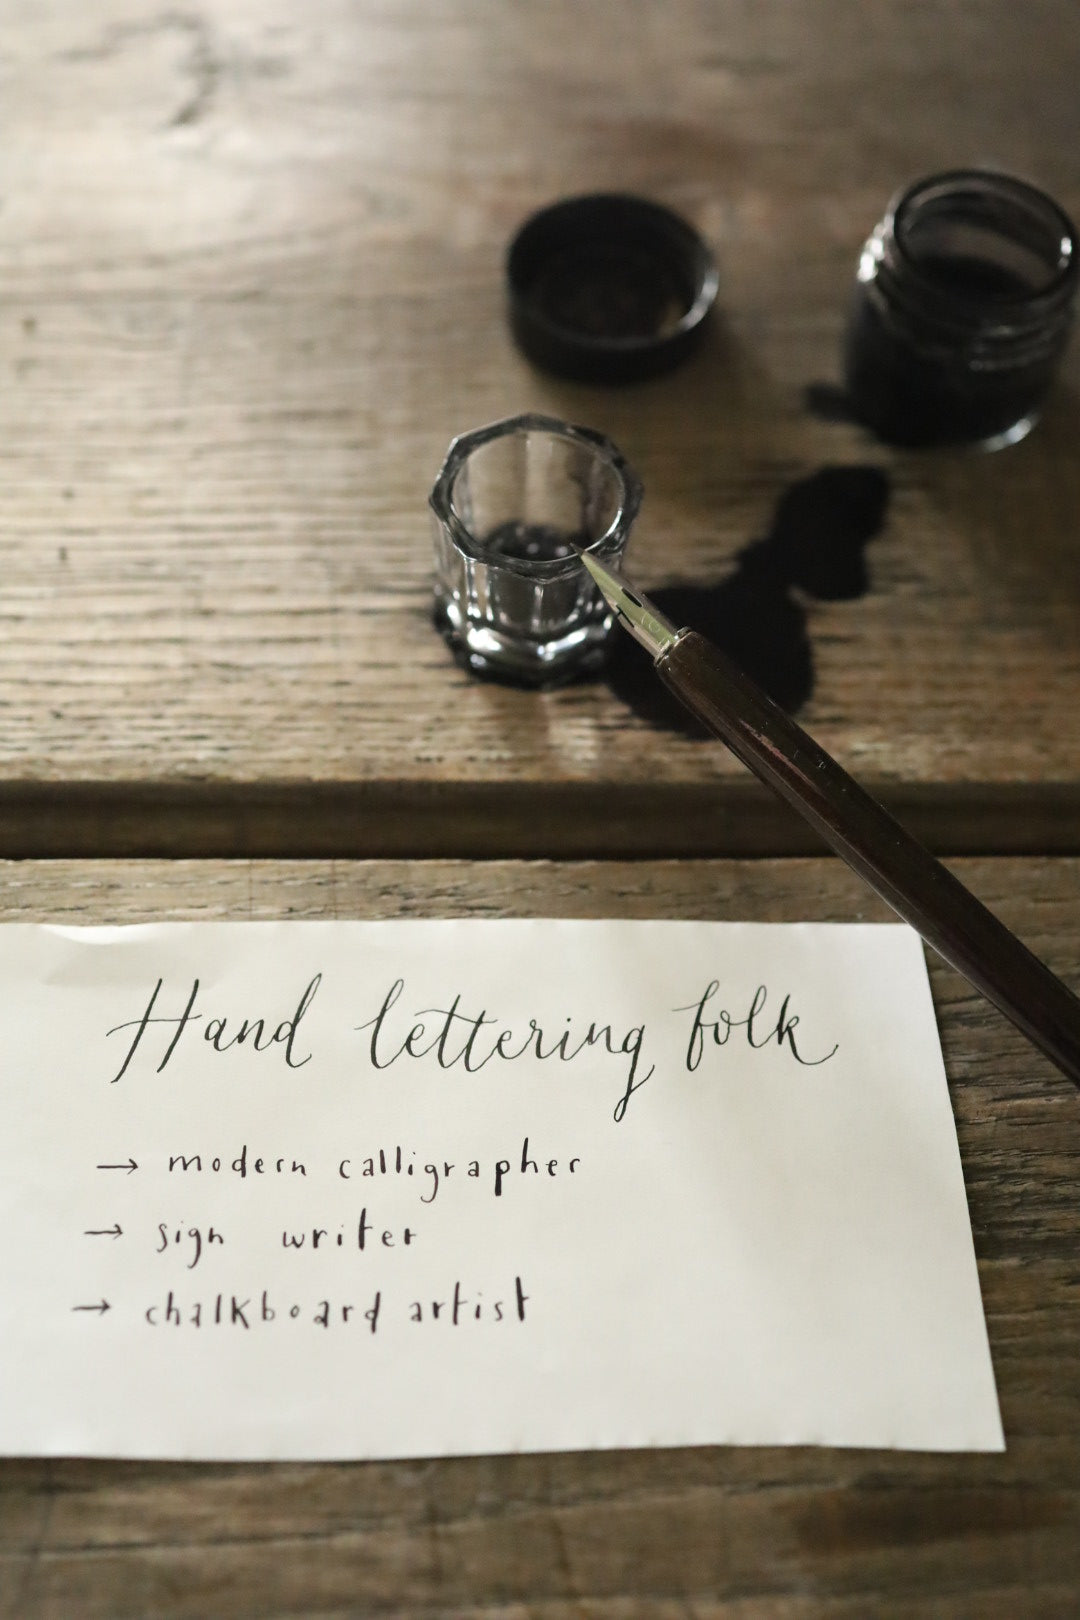 Hand lettering folk
→ modern calligrapher
→ sign writer
→ chalkboard artist